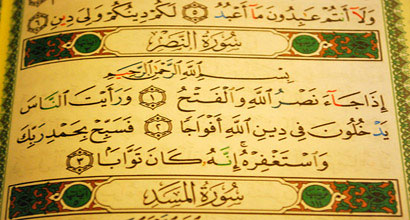 وَلَآ أَنتُمْ عَـٰبِدُونَ مَآ أَعْبُدُ ۝٥ لَكُمْ دِينُكُمْ وَلِىَ دِينِ ۝٦
سُورَةُ النَّصْرِ
بِسْمِ ٱللَّهِ ٱلرَّحْمَـٰنِ ٱلرَّحِيمِ
إِذَا جَآءَ نَصْرُ ٱللَّهِ وَٱلْفَتْحُ ۝١ وَرَأَيْتَ ٱلنَّاسَ
يَدْخُلُونَ فِى دِينِ ٱللَّهِ أَفْوَاجًا ۝٢ فَسَبِّحْ بِحَمْدِ رَبِّكَ
وَٱسْتَغْفِرْهُ ۚ إِنَّهُۥ كَانَ تَوَّابًۢا ۝٣
سُورَةُ المَسَدِ